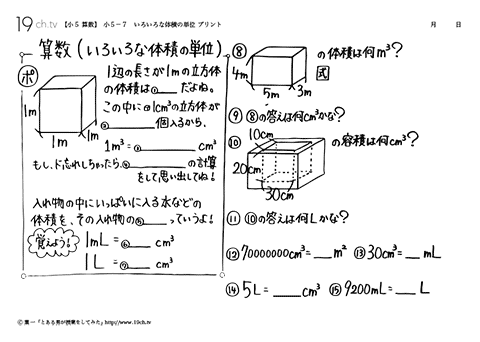 19 ch.tv 【小5 算数】 小5-7 いろいろな体積の単位 プリント
月 日
算数(いろいろな体積の単位)
ポ
1m
1m
1m
1辺の長さが1mの立方体
の体積は①____だよね。
この中に1cm³の立方体が
②____個入るから、
1____³=③____cm³
もし、ド忘れしちゃったら、④____の計算
をして思い出してね!
入れ物の中にいっぱいに入る水などの
体積を、その入れ物の⑤____っていうよ!
覚えよう!
1mL=⑥____cm³
1L=⑦____cm³
⑧
4m
5m
3m
の体積は何m³?
式
⑨ ⑧の答えは何cm³かな?
⑩
10cm
20cm
30cm
の容積は何cm³?
⑪ ⑩の答えは何Lかな?
⑫70000000cm³=__m³ ⑬30cm³=__mL
⑭5L=____cm³ ⑮9200mL=__L
© 葉一「とある男が授業をしてみた」http://www.19ch.tv